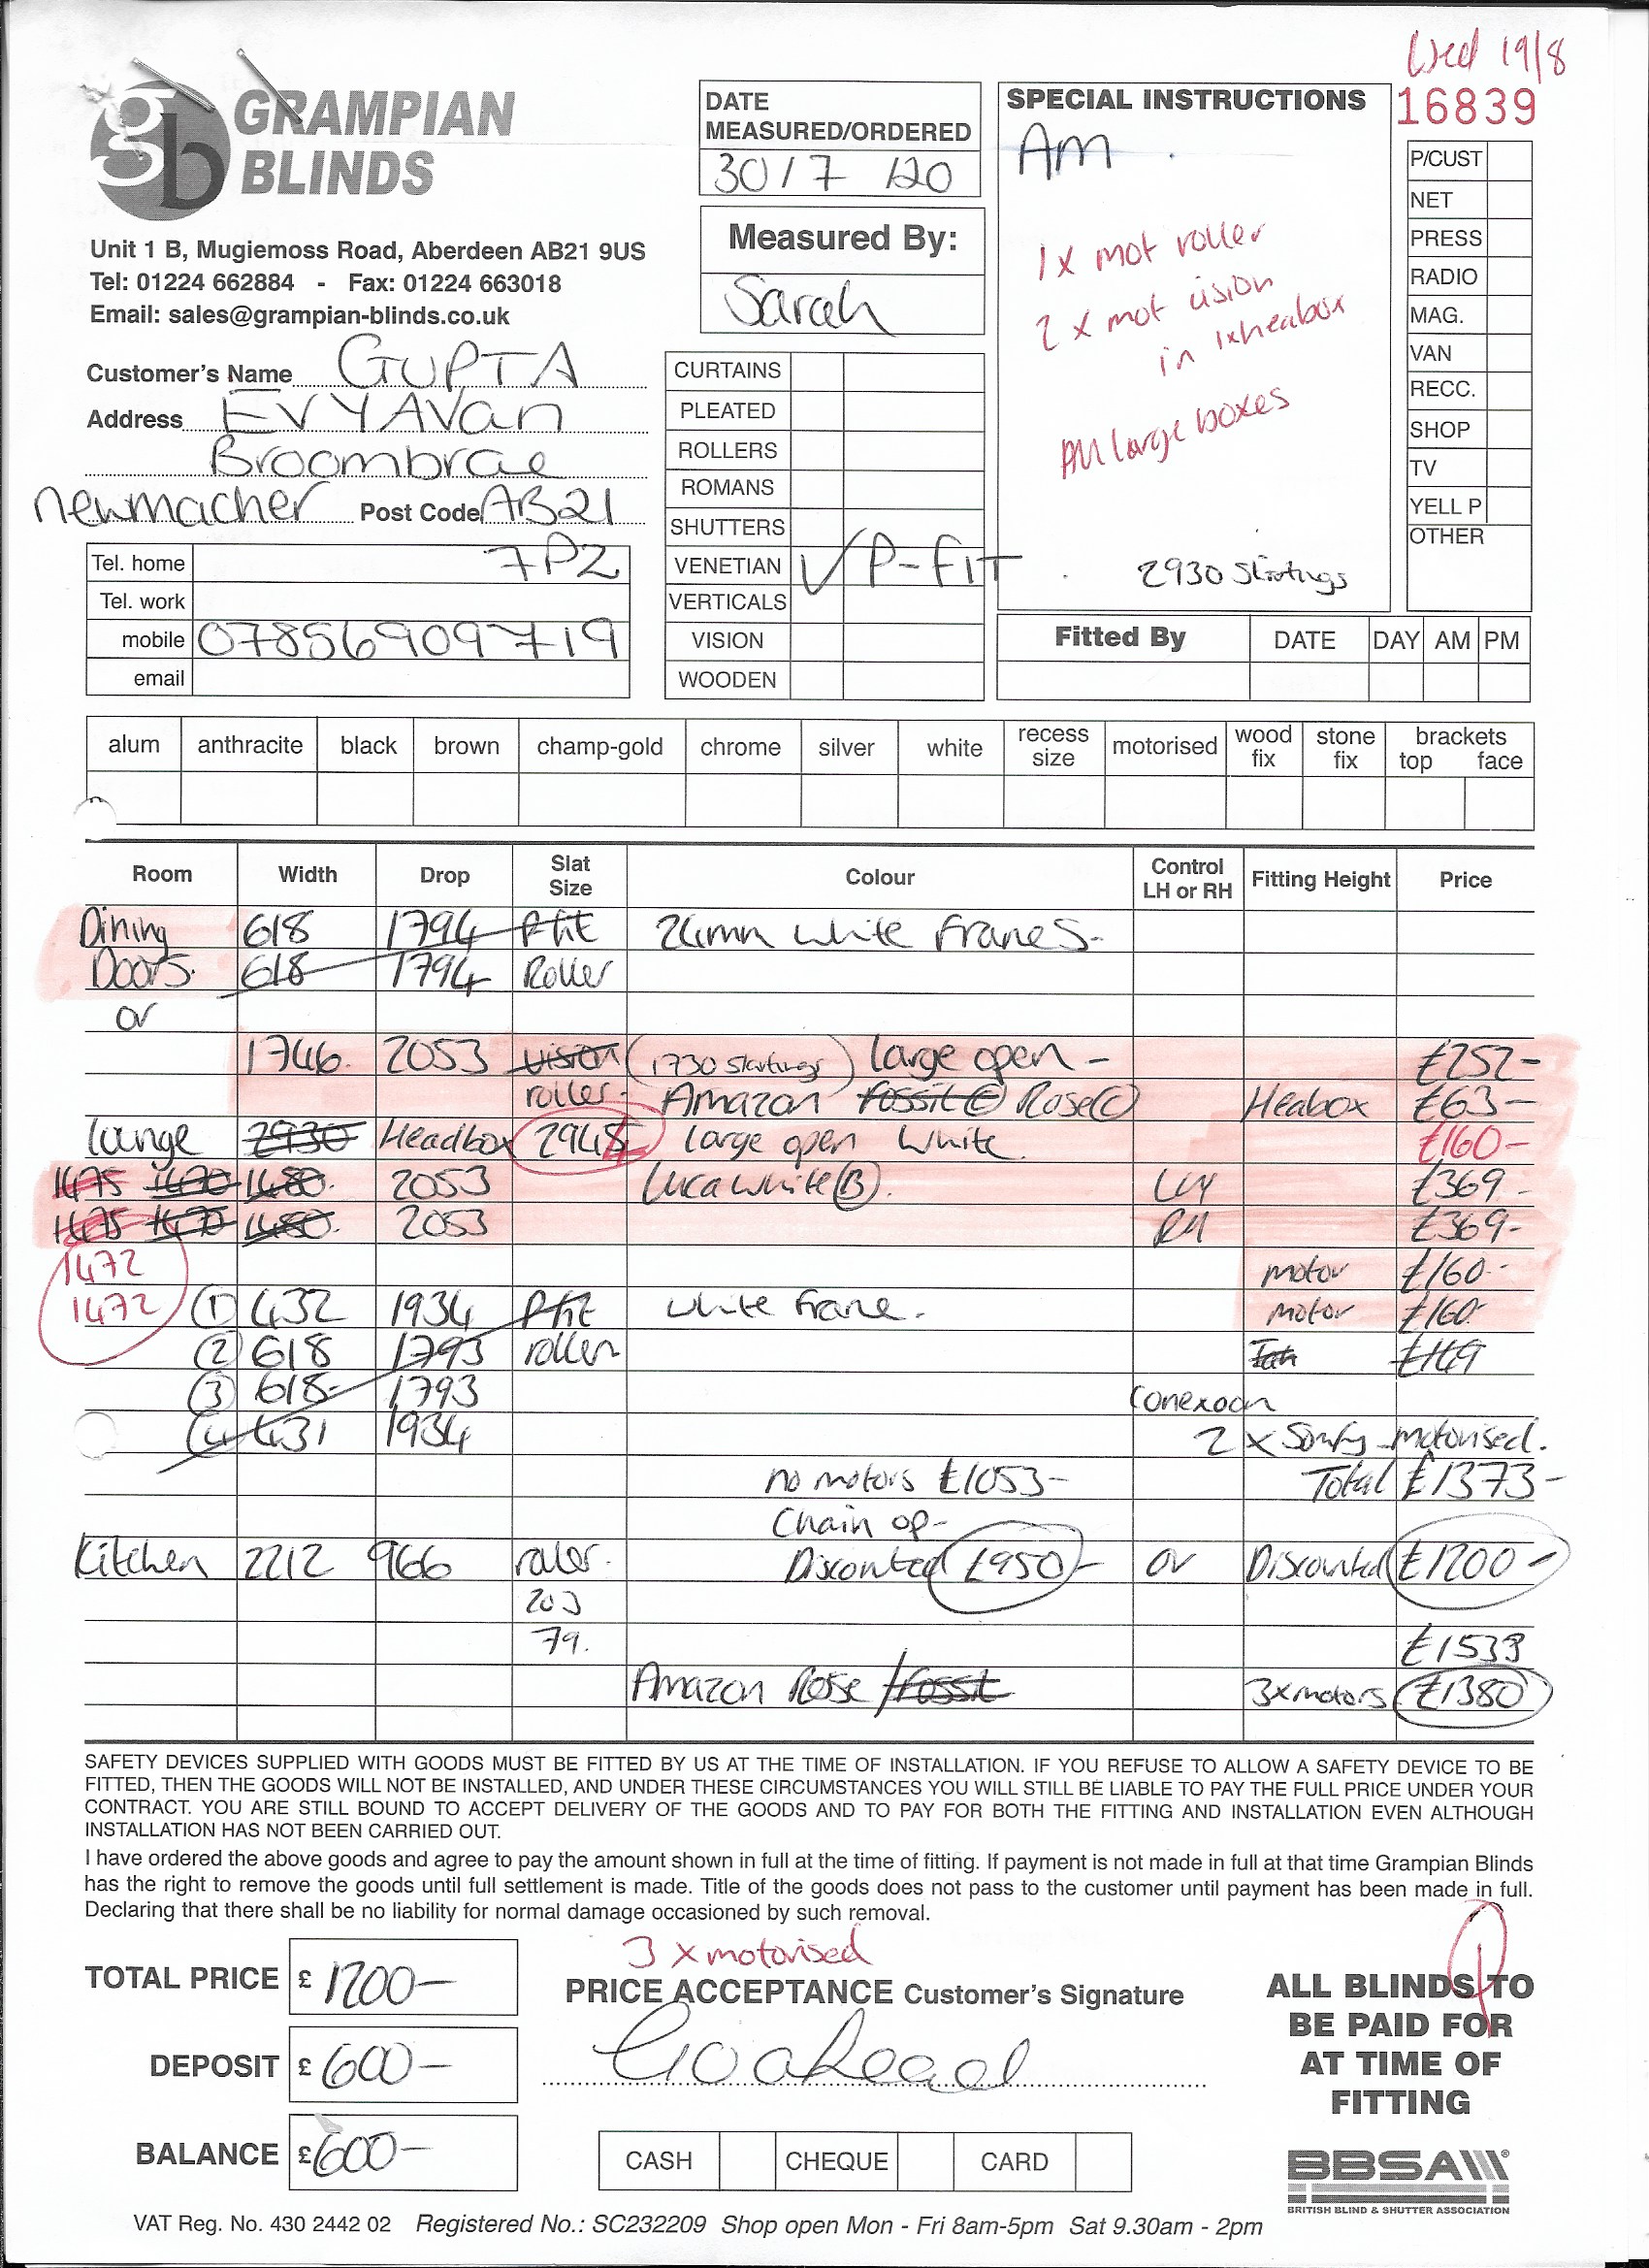 Wed 19/8
GRAMPIAN
BLINDS
Unit 1 B, Mugiemoss Road, Aberdeen AB21 9US
Tel: 01224 662884 - Fax: 01224 663018
Email: sales@grampian-blinds.co.uk
DATE
MEASURED/ORDERED
30/7/20
Measured By:
Sarah
SPECIAL INSTRUCTIONS
AM
1 x mot roller
2 x mot vision
in 1xheabox
All large boxes
2930 Skirtings
16839
P/CUST
NET
PRESS
RADIO
MAG.
VAN
RECC.
SHOP
TV
YELL P
OTHER
Customer's Name GUPTA
Address EVYAVan
Broombrae
Newmacher Post Code AB21
7PZ
Tel. home
Tel. work
mobile 07856909719
email
CURTAINS
PLEATED
ROLLERS
ROMANS
SHUTTERS
VENETIAN ✓ P-FIT
VERTICALS
VISION
WOODEN
Fitted By DATE DAY AM PM
alum anthracite black brown champ-gold chrome silver white recess size motorised wood fix stone fix brackets top face
Room Width Drop Slat Size Colour Control LH or RH Fitting Height Price
Dining 618 1794 Pfit 24mm white Frames-
Doors. 618 1794 Roller
or
1746. 2053 vision (1730 Skirtings) large open - £252-
roller- Amazon Fossil(C) Rose(C) Heabox £63-
lounge 2930 Headbox 2945 large open White £160-
1475 1470 1480. 2053 Luca white (B). LH £369-
1475 1470 1480. 2053 RH £369-
1472 motor £160-
1472 (1) 432 1934 Pfit white Frame. motor £160-
(2) 618 1793 roller £149
(3) 618- 1793 Conexoon
(4) 431 1934 2 x Somfy motorised.
no motors £1053- Total £1373-
Chain op-
Kitchen 2212 966 roler. Discounted £950- or Discounted £1200-
203
79. £1533
Amazon Rose / Fossil 3xmotors £1380
SAFETY DEVICES SUPPLIED WITH GOODS MUST BE FITTED BY US AT THE TIME OF INSTALLATION. IF YOU REFUSE TO ALLOW A SAFETY DEVICE TO BE
FITTED, THEN THE GOODS WILL NOT BE INSTALLED, AND UNDER THESE CIRCUMSTANCES YOU WILL STILL BE LIABLE TO PAY THE FULL PRICE UNDER YOUR
CONTRACT. YOU ARE STILL BOUND TO ACCEPT DELIVERY OF THE GOODS AND TO PAY FOR BOTH THE FITTING AND INSTALLATION EVEN ALTHOUGH
INSTALLATION HAS NOT BEEN CARRIED OUT.
I have ordered the above goods and agree to pay the amount shown in full at the time of fitting. If payment is not made in full at that time Grampian Blinds
has the right to remove the goods until full settlement is made. Title of the goods does not pass to the customer until payment has been made in full.
Declaring that there shall be no liability for normal damage occasioned by such removal.
3 x motorised
TOTAL PRICE £ 1200-
PRICE ACCEPTANCE Customer's Signature
Goahead
DEPOSIT £ 600-
BALANCE £ 600-
CASH CHEQUE CARD
ALL BLINDS TO
BE PAID FOR
AT TIME OF
FITTING
BBSA
BRITISH BLIND & SHUTTER ASSOCIATION
VAT Reg. No. 430 2442 02 Registered No.: SC232209 Shop open Mon - Fri 8am-5pm Sat 9.30am - 2pm